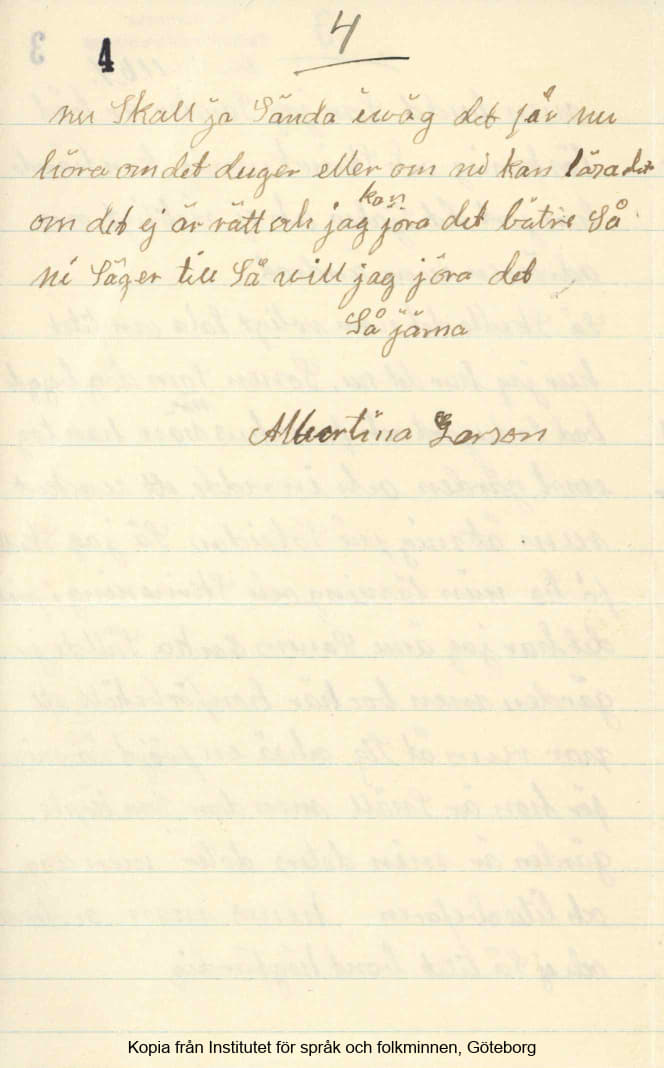 4
4
nu Skall ja Sända iwäg det får nu
höra om det duger eller om ni kan läsa det
om det ej är rätt och jag kan jöra det bätre Så
ni Säger till Så will jag jöra det
Så järna
Albertina Larson
Kopia från Institutet för språk och folkminnen, Göteborg